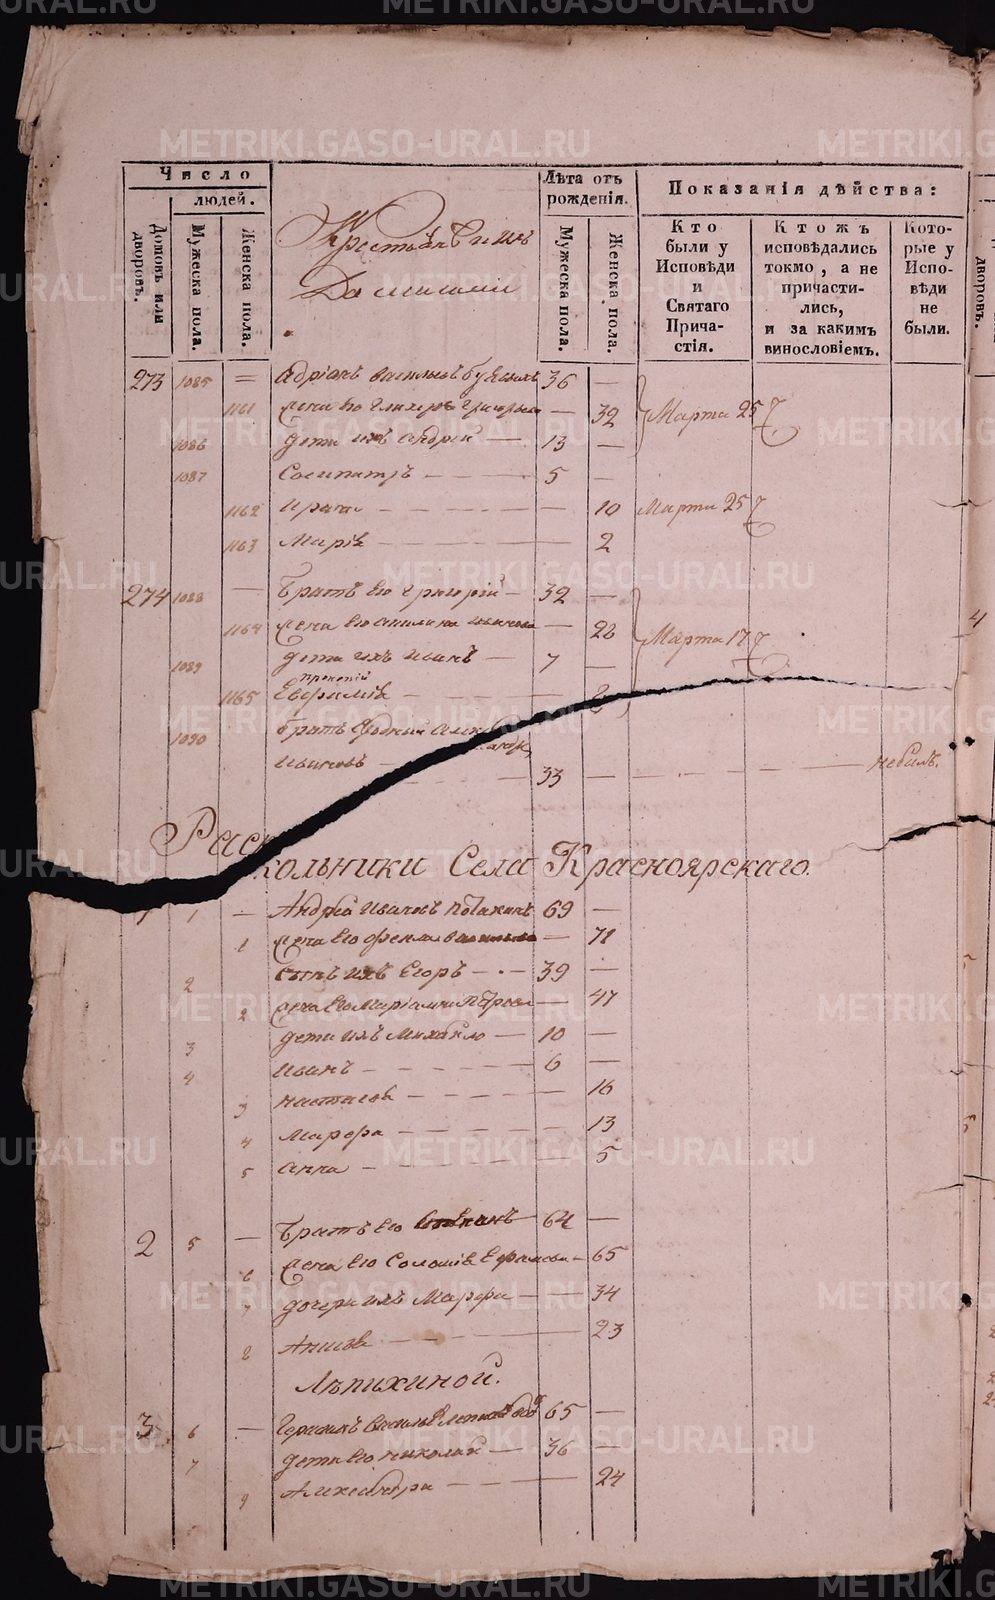 Число
людей.
Домовъ или дворовъ.
Мужеска пола.
Женска пола.
Крестьянъ и ихъ
Домашнии
Лѣта отъ
рожденія.
Мужеска пола.
Женска пола.
Показанія дѣйства:
Кто были у Исповѣди и Святаго Причастія.
Ктожъ исповѣдались токмо, а не причастились, и за какимъ винословіемъ.
Которые у Исповѣди не были.
273 1085 Адріанъ Васильевъ 36 —
1161 жена его Григорьева — 32 Марта 25
1086 дети ихъ Андрей — 13 —
1087 Сосипатръ — 5 —
1162 — 10 Марта 25
1163 Марія — 2
274 1088 — Братъ его Григорій — 32 —
1164 жена его — 28 Марта 17
1089 дети ихъ Иванъ — 7 —
Прокопій
1165 Евфимія — 2
1090 братъ
Ивановъ — 33 — небылъ.
Раскольники Села Красноярскаго.
1 1 — Андрей Ивановъ 69 —
1 жена его Васильева — 71
2 сынъ ихъ Егоръ — 39 —
2 жена его Маріамна Петрова — 47
3 дети ихъ Михайло — 10 —
4 Иванъ — 6 —
3 Настасья — 16
4 Марфа — 13
5 Анна — 5
2 5 — Братъ его 64 —
6 жена его Соломія — 65
7 дочери ихъ Марфа — 34
8 Анисія — 23
Лѣпихиной.
3 6 — Васильевъ 65 —
7 дети его Николай — 36 —
9 Александра — 24
дворовъ.
METRIKI.GASO-URAL.RU